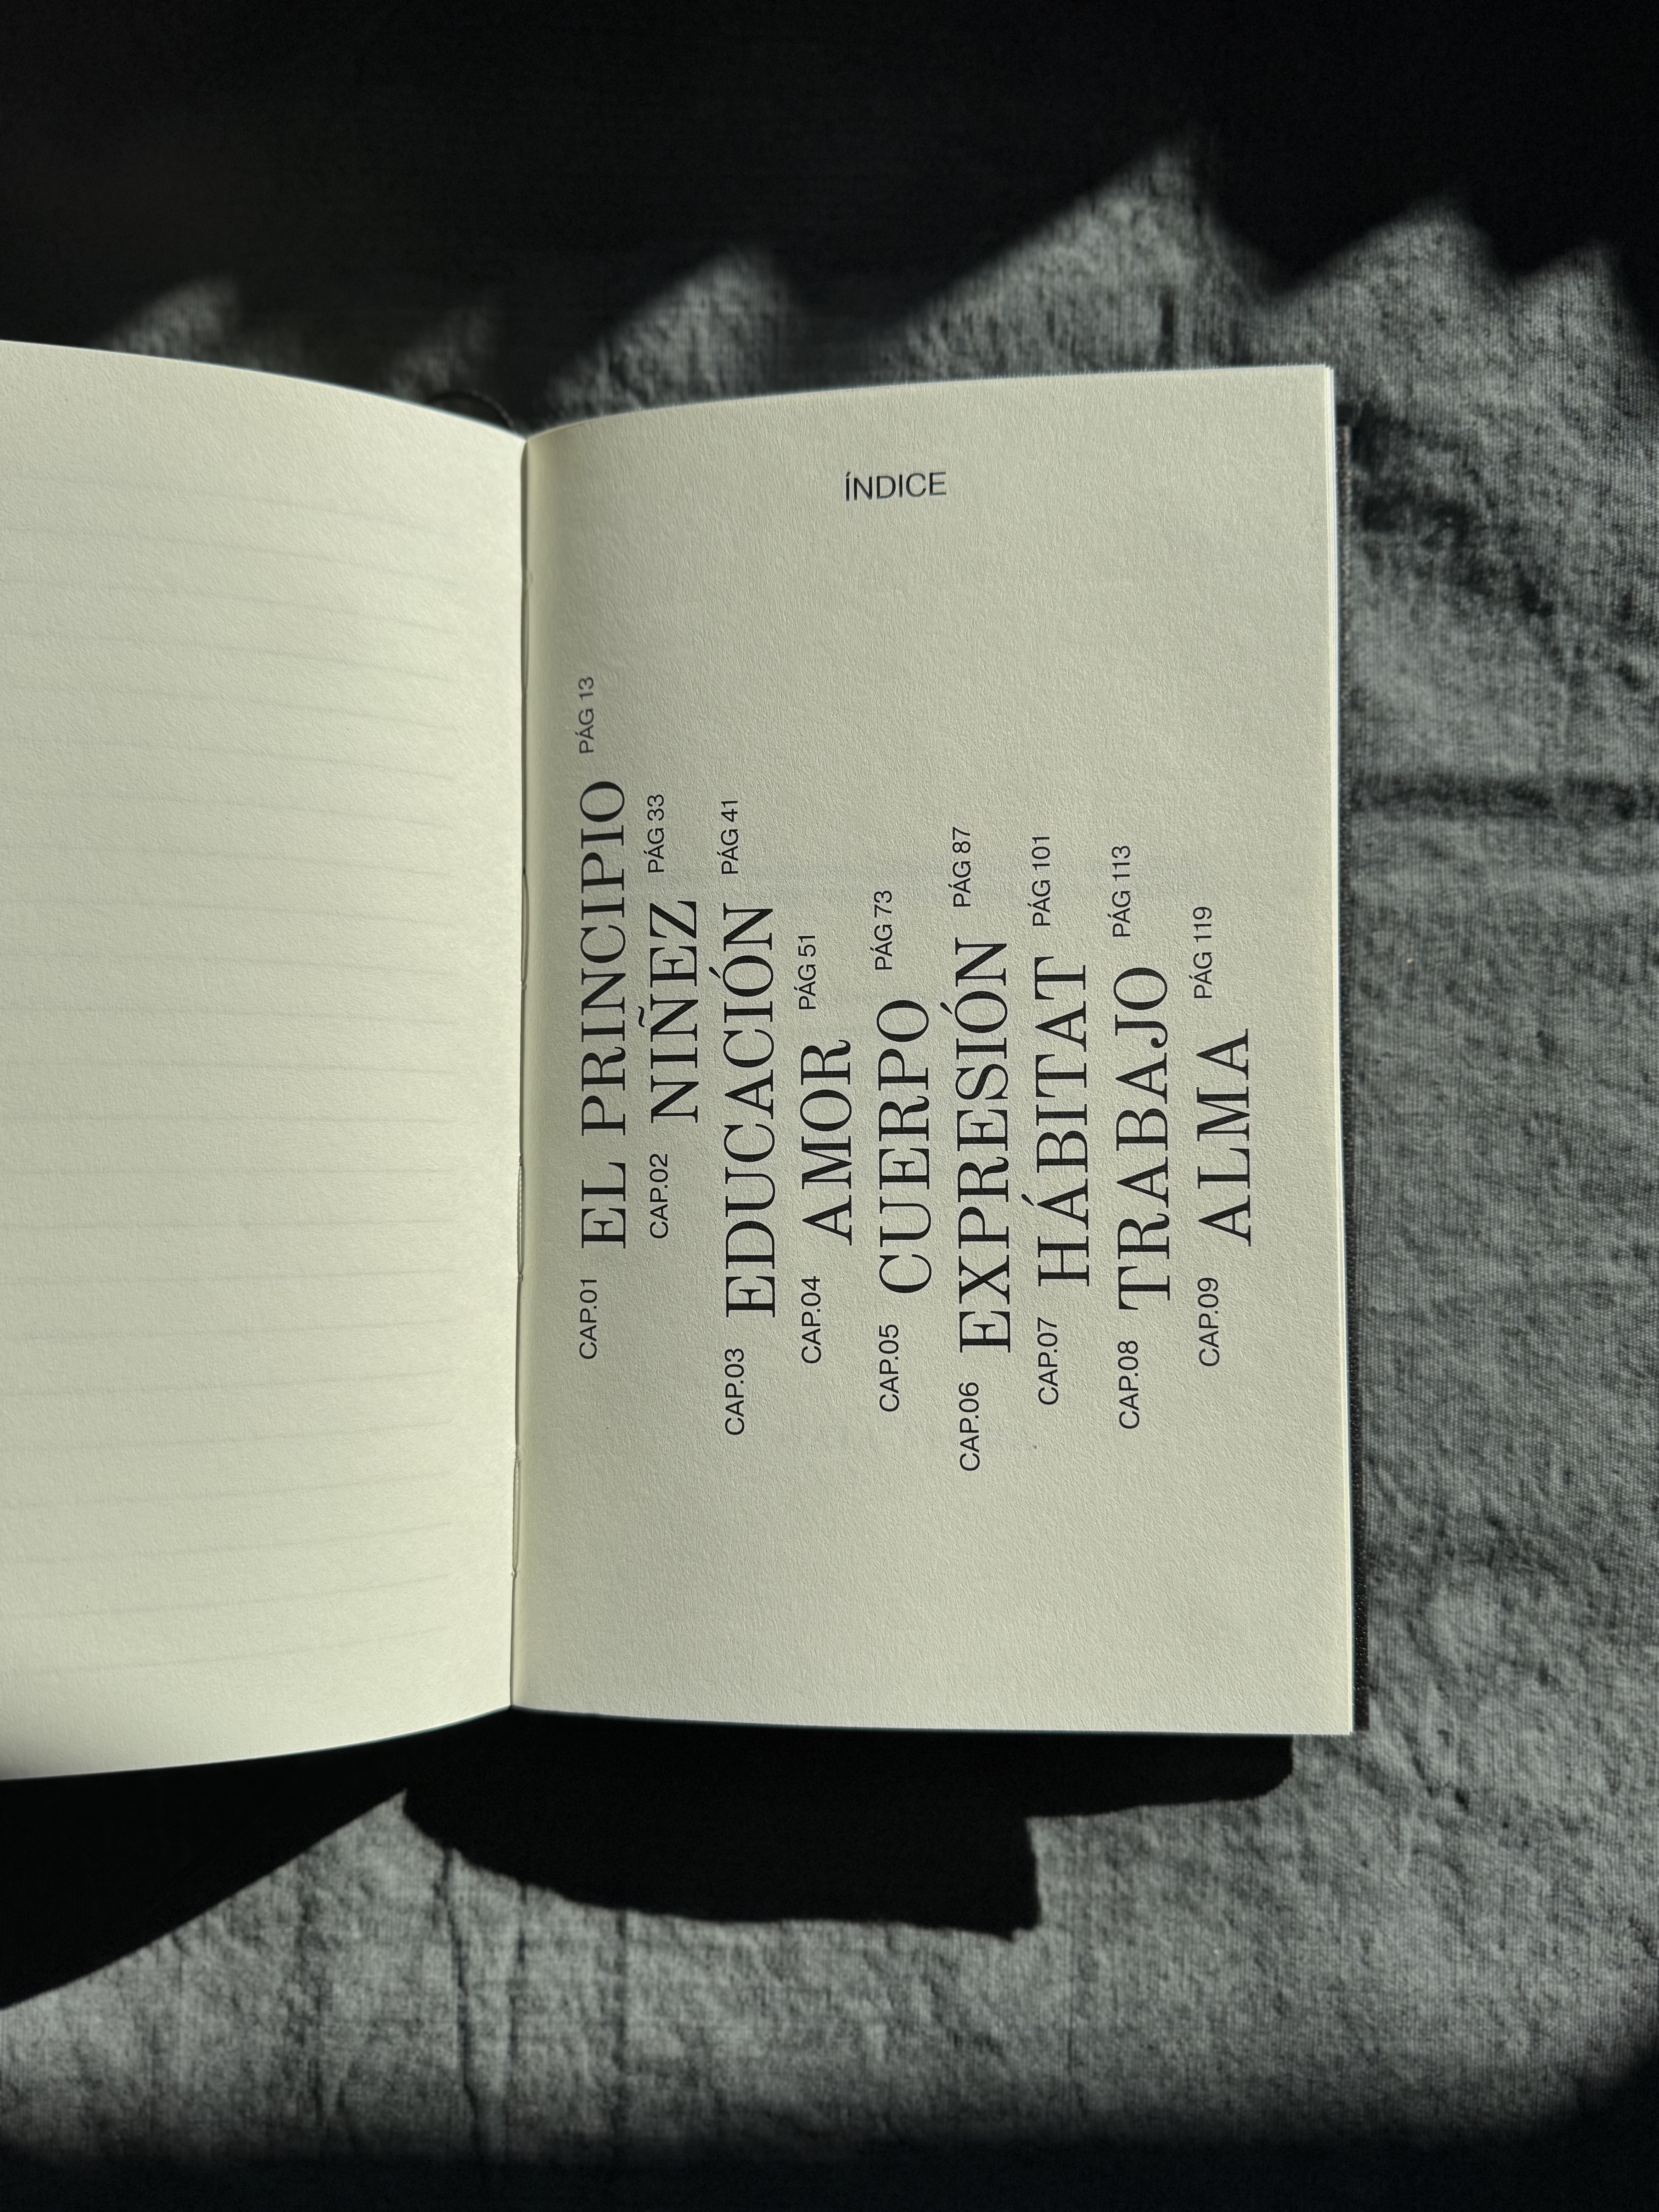 ÍNDICE
CAP.01 EL PRINCIPIO PÁG 13
CAP.02 NIÑEZ PÁG 33
CAP.03 EDUCACIÓN PÁG 41
CAP.04 AMOR PÁG 51
CAP.05 CUERPO PÁG 73
CAP.06 EXPRESIÓN PÁG 87
CAP.07 HÁBITAT PÁG 101
CAP.08 TRABAJO PÁG 113
CAP.09 ALMA PÁG 119